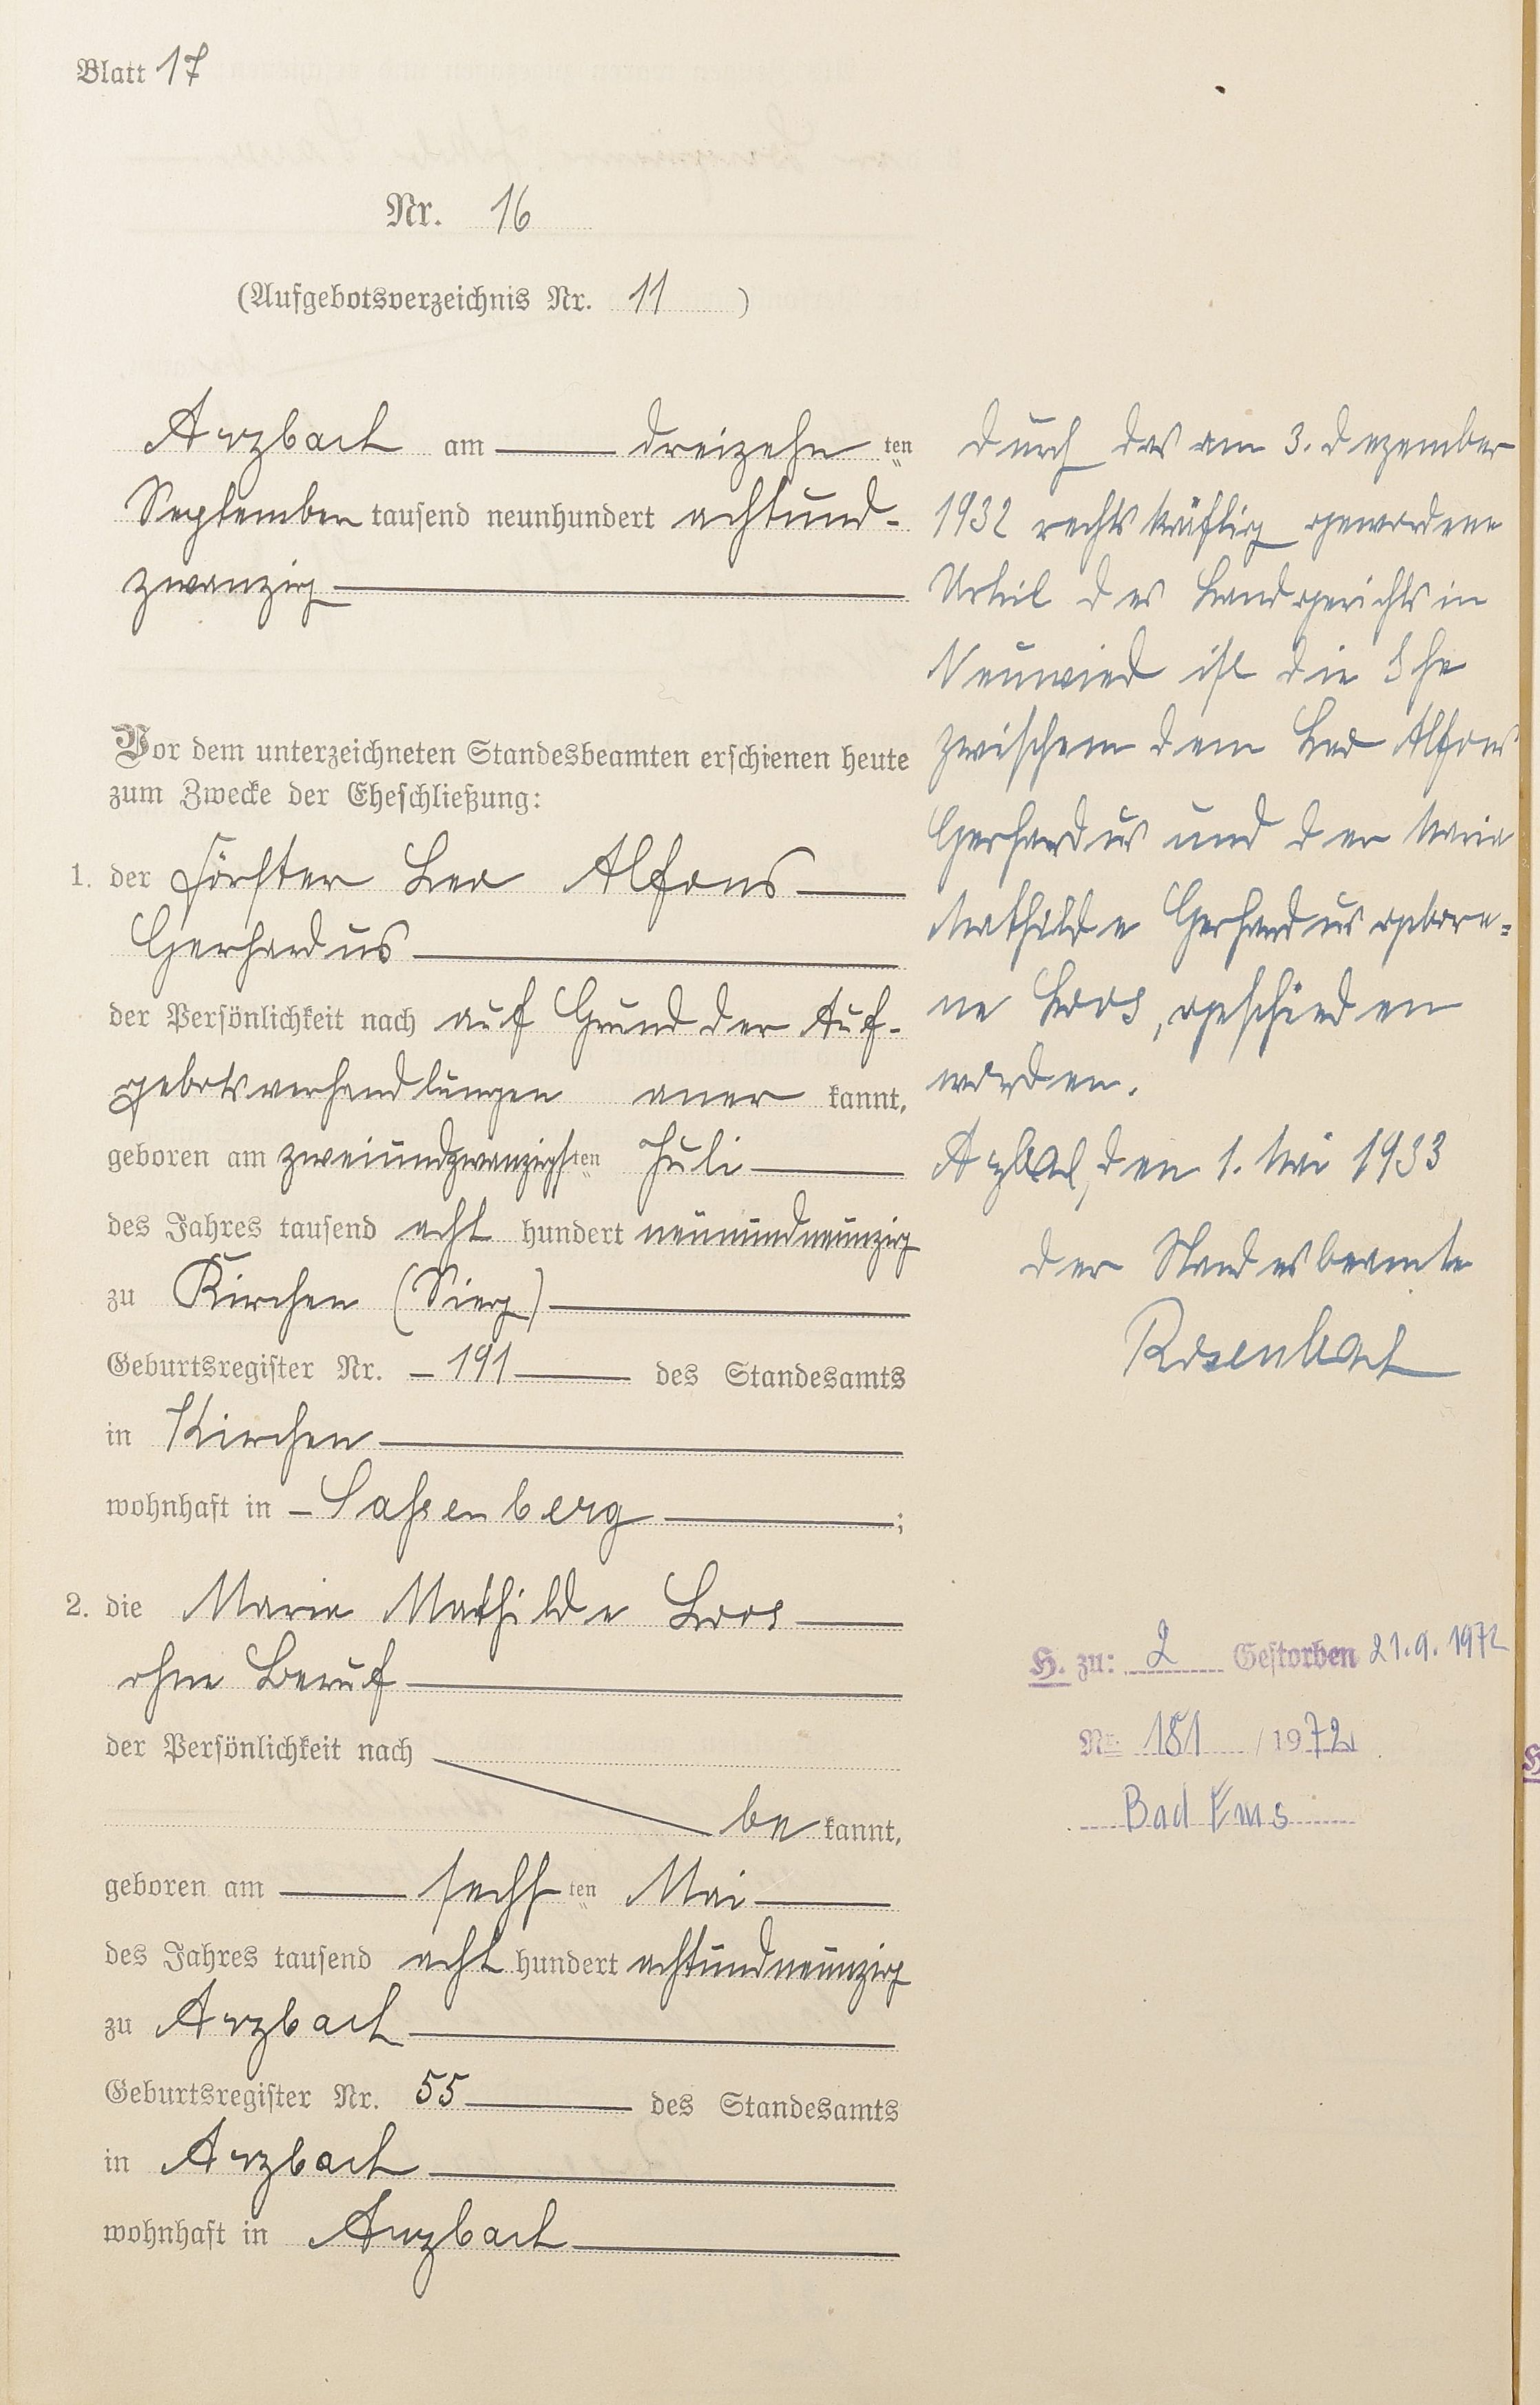 Blatt 17
Nr. 16
(Aufgebotsverzeichnis Nr. 11 )
Arzbach am dreizehn ten
September tausend neunhundert achtund-
zwanzig
Vor dem unterzeichneten Standesbeamten erschienen heute
zum Zwecke der Eheschließung:
1. der Förster Leo Alfons
Gerhardus
der Persönlichkeit nach auf Grund der Auf-
gebotsverhandlungen aner kannt,
geboren am zweiundzwanzigsten Juli
des Jahres tausend acht hundert neunundneunzig
zu Kirchen (Sieg)
Geburtsregister Nr. 191 des Standesamts
in Kirchen
wohnhaft in Sassenberg ;
2. die Maria Mathilde Loos
ohne Beruf
der Persönlichkeit nach
be kannt,
geboren am sechs ten Mai
des Jahres tausend acht hundert achtundneunzig
zu Arzbach
Geburtsregister Nr. 55 des Standesamts
in Arzbach
wohnhaft in Arzbach
Durch das am 3. Dezember
1932 rechtskräftig gewordene
Urteil des Landgerichts in
Neuwied ist die Ehe
zwischen dem Leo Alfons
Gerhardus und der Maria
Mathilde Gerhardus gebore=
ne Loos, geschieden
worden.
Arzbach, den 1. Mai 1933
Der Standesbeamte
Rosenbach
H. zu: 2 Gestorben 21.9.1972
Nr. 181 /1972
Bad Ems
H